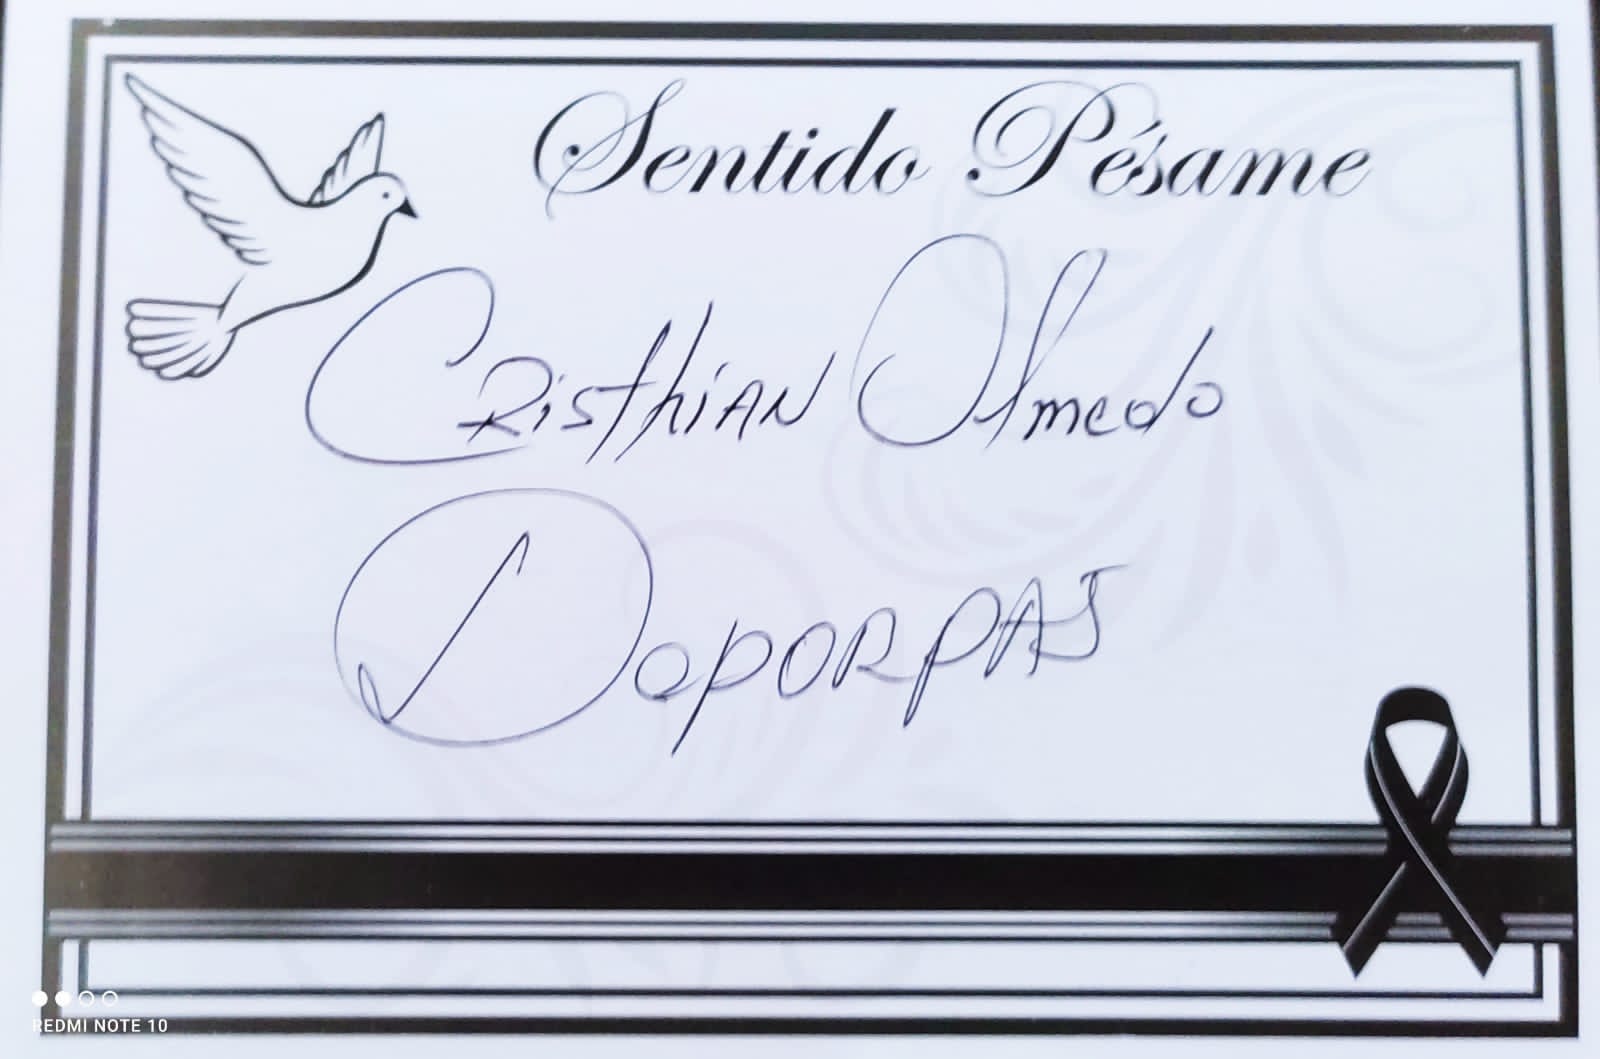 Sentido Pésame
Cristhian Olmedo
DOPORPAJ
REDMI NOTE 10